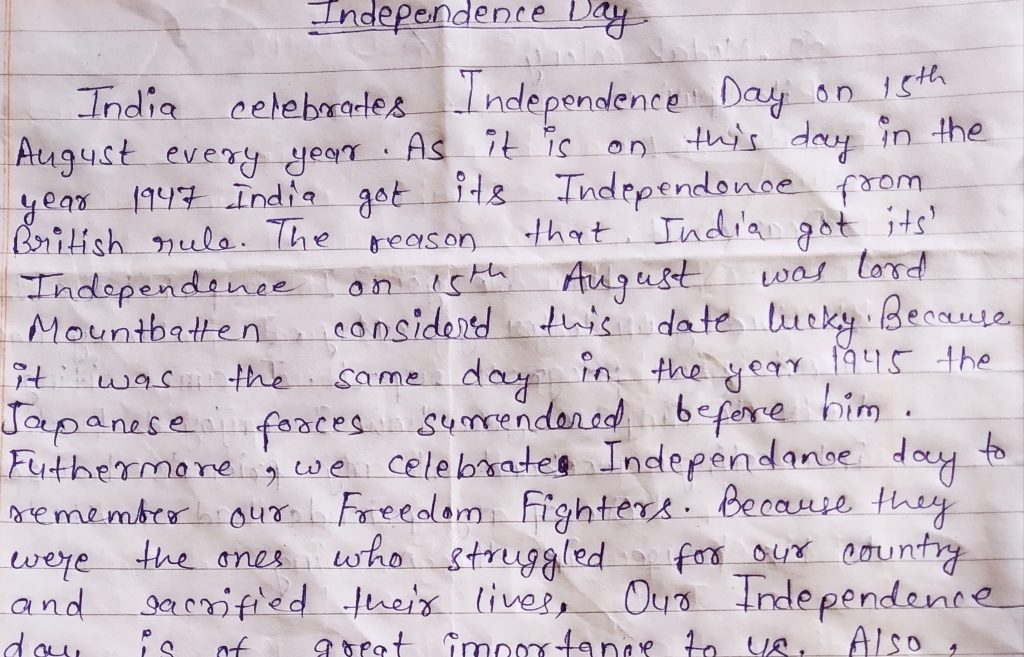 Independence Day
India celebrates Independence Day on 15th
August every year. As it is on this day in the
year 1947 India got its Independence from
British rule. The reason that India got its'
Independence on 15th August was lord
Mountbatten considered this date lucky. Because
it was the same day in the year 1945 the
Japanese forces surrendered before him.
Futhermore, we celebrates Independance day to
remember our Freedom Fighters. Because they
were the ones who struggled for our country
and sacrified their lives, Our Independence
day is of great importance to us. Also,